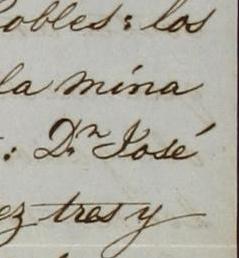 Robles: los
la mina
: Dn José
ez tres y